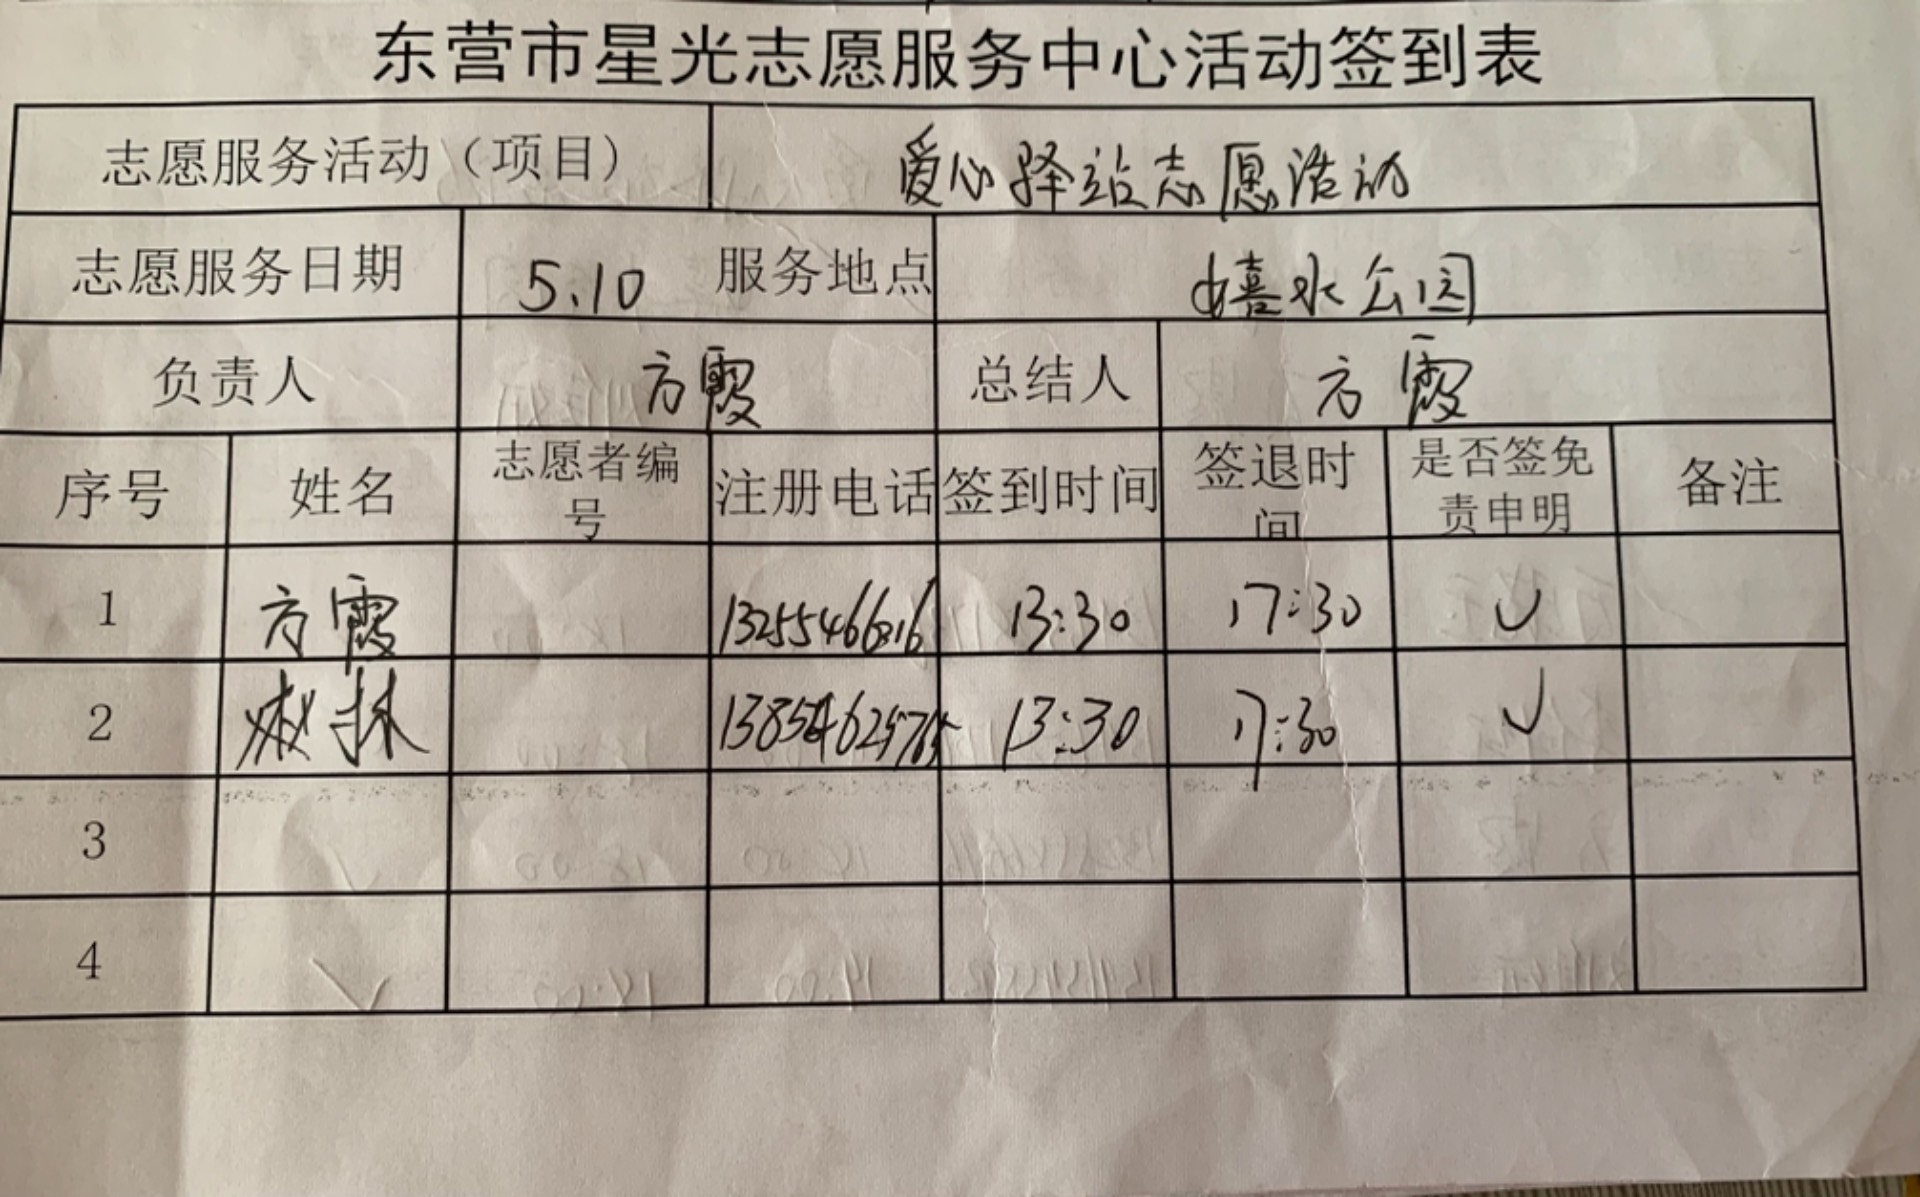 东营市星光志愿服务中心活动签到表
志愿服务活动（项目） 爱心驿站志愿活动
志愿服务日期 5.10 服务地点 嬉水公园
负责人 方霞 总结人 方霞
序号 姓名 志愿者编号 注册电话 签到时间 签退时间 是否签免责申明 备注
1 方霞 13:30 17:30 ✓
2 13:30 17:30 ✓
3
4